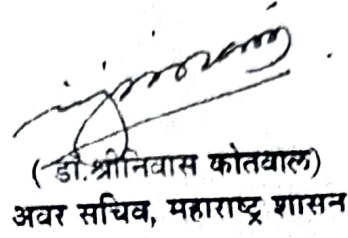 ( डॉ. श्रीनिवास कोतवाल)
अवर सचिव, महाराष्ट्र शासन